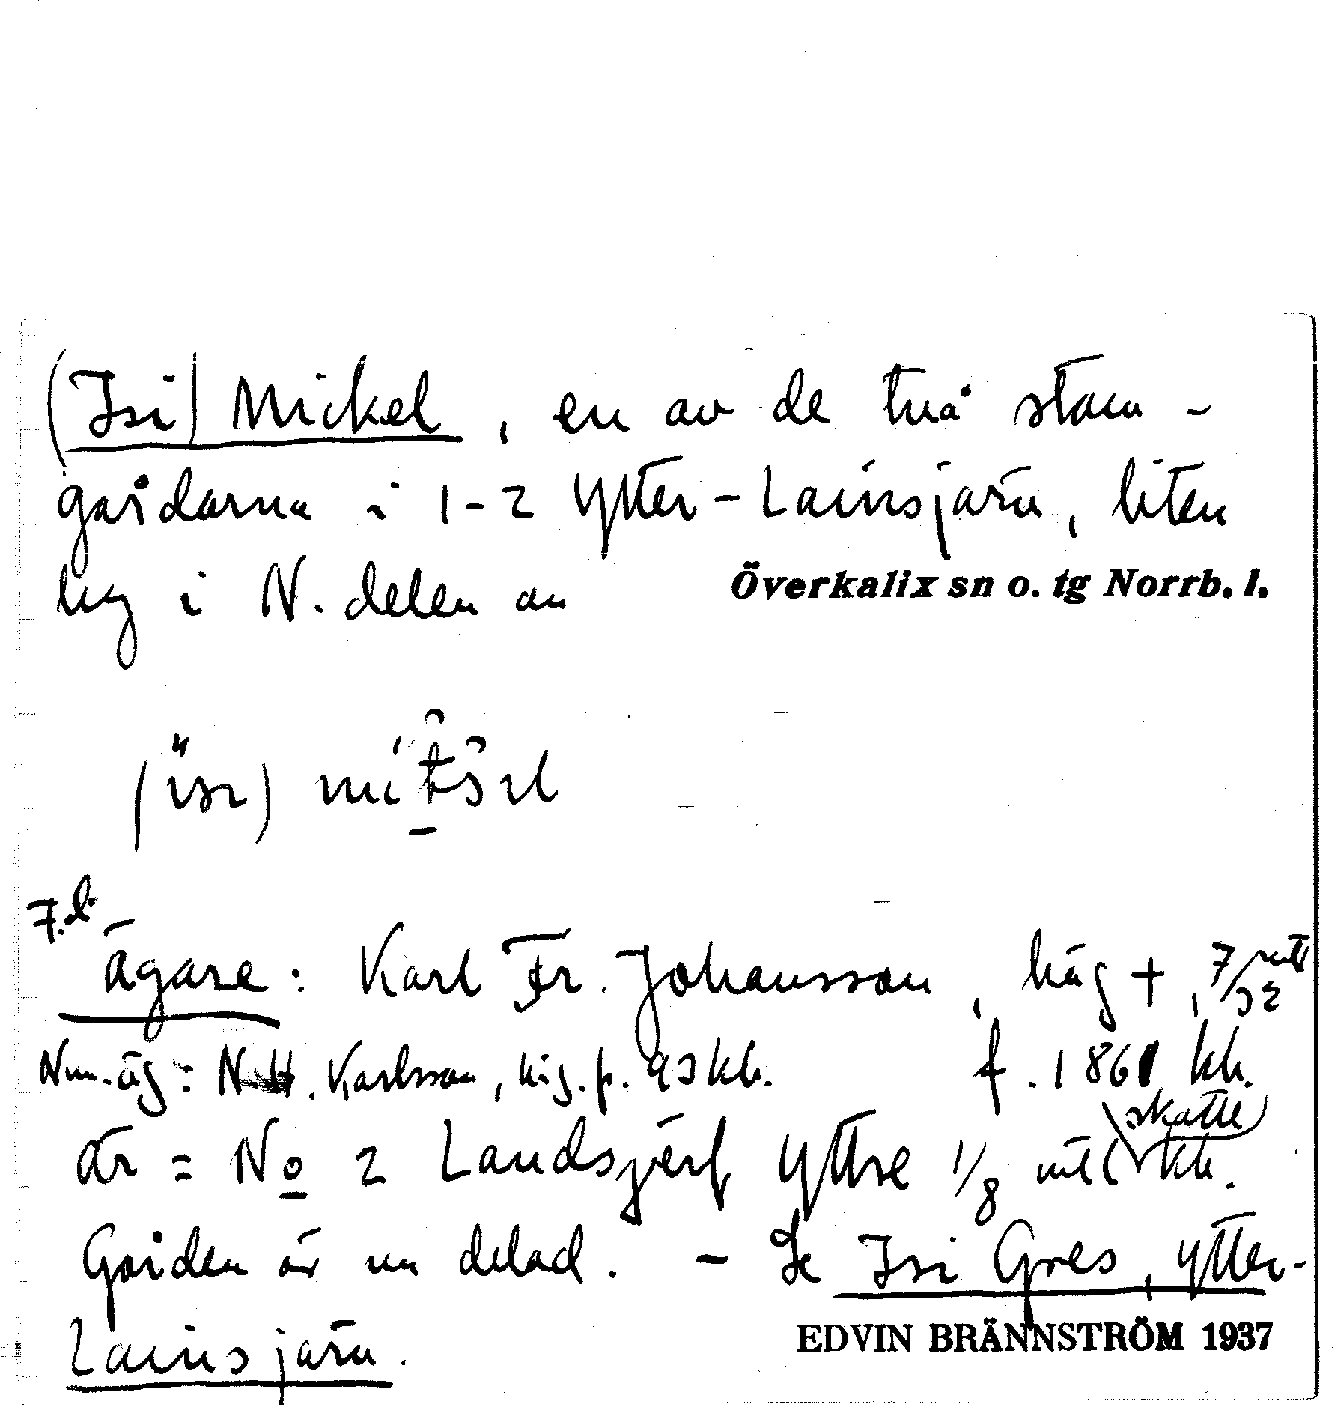 (Isi) Mickel, en av de två stam-
gårdarna i 1-2 Ytter-Lainsjärv, liten
i N. delen av
Överkalix sn o. tg Norrb. l.
F.d.
ägare: Karl Fr. Johansson,
Nuv. äg: N. H. Karlsson, kh.
f. 1861 kh.
är = No 2 Landsjerf Yttre 1/8 mtl skatte kh.
Gården är nu delad. - Se Isi Gres, Ytter-
Lainsjärv.
EDVIN BRÄNNSTRÖM 1937